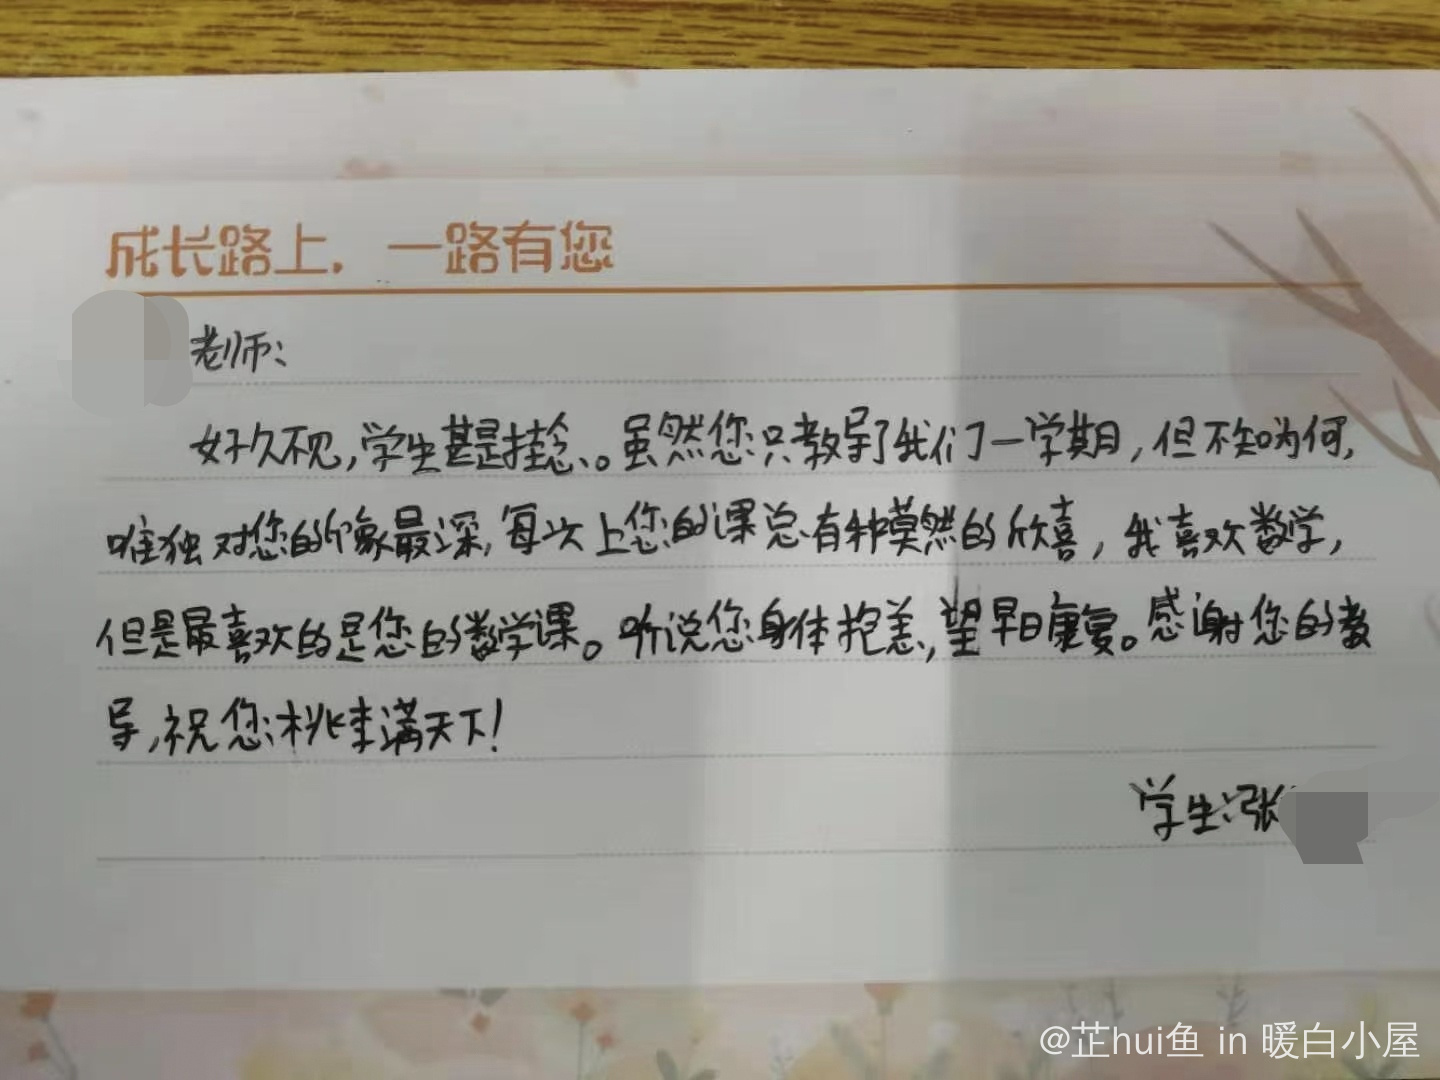 成长路上，一路有您
老师：
好久不见，学生甚是挂念。虽然您只教导了我们一学期，但不知为何，
唯独对您的印象最深，每次上您的课总有种莫然的欣喜，我喜欢数学，
但是最喜欢的是您的数学课。听说您身体抱恙，望早日康复。感谢您的教
导，祝您桃李满天下！
学生：张
@芷hui鱼 in 暖白小屋